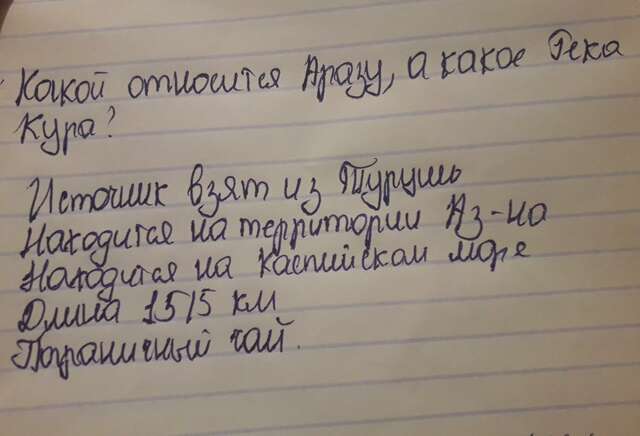 Какой относится Аразу, а какое Река
Кура?
Источник взят из Турциь
Находится на территории Аз-на
Находится на Каспийском море
Длина 1515 км
Пограничный чай.